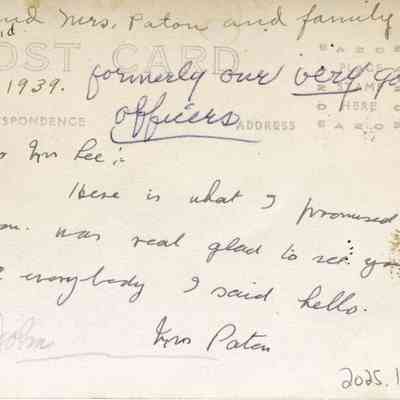 and Mrs. Paton and family
POST CARD
1939. formerly our very
officers
PLACE
STAMP
HERE
RESPONDENCE ADDRESS
Mrs Lee:-
Here is what I promised
was real glad to see you
everybody I said hello.
John Mrs Paton
2025.1